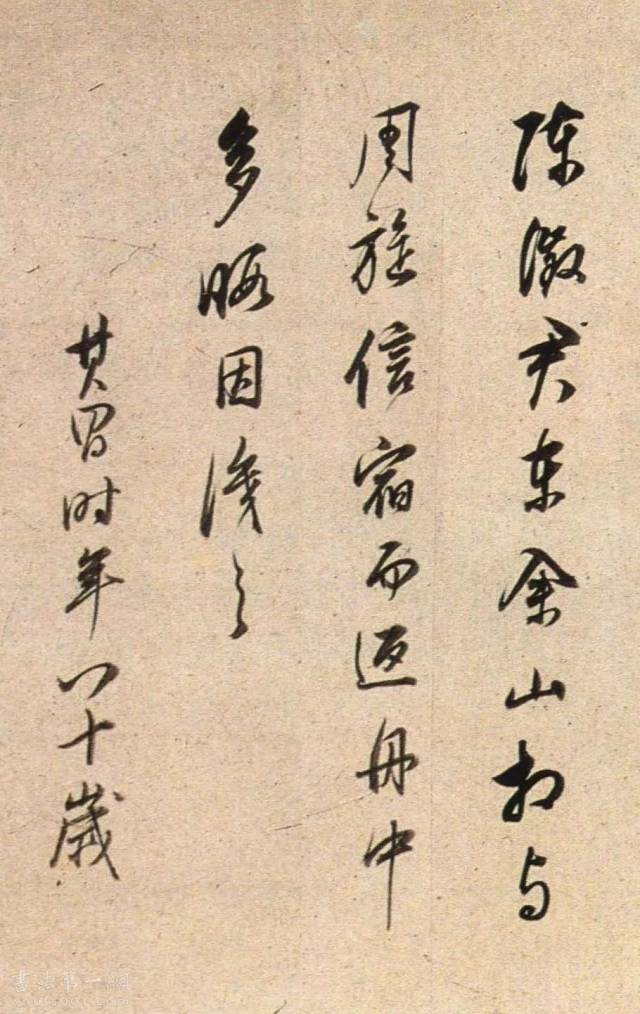 陳徵君東佘山相与
周旋信宿而返舟中
多暇因識之
其昌時年八十歲
書法第一網